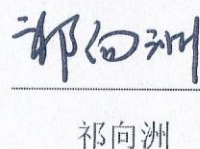 祁向洲
祁向洲